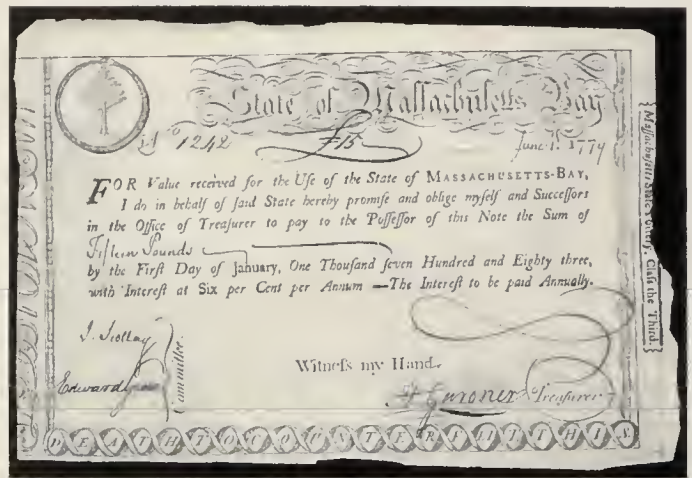 State of Maſsachuſetts Bay
No 1242 £15 June 1. 1779
FOR Value received for the Uſe of the State of MASSACHUSETTS-BAY,
I do in behalf of ſaid State hereby promiſe and oblige myſelf and Succeſſors
in the Office of Treaſurer to pay to the Poſſeſſor of this Note the Sum of
Fifteen Pounds
by the Firſt Day of January, One Thouſand ſeven Hundred and Eighty three,
with Intereſt at Six per Cent per Annum —The Intereſt to be paid Annually.
Witneſs my Hand.
J. Scollay
Edward
Committee.
H Gardner Treaſurer
DEATH TO COUNTERFEIT THIS
{Maſſachuſetts State Lottery, Claſs the Third.}